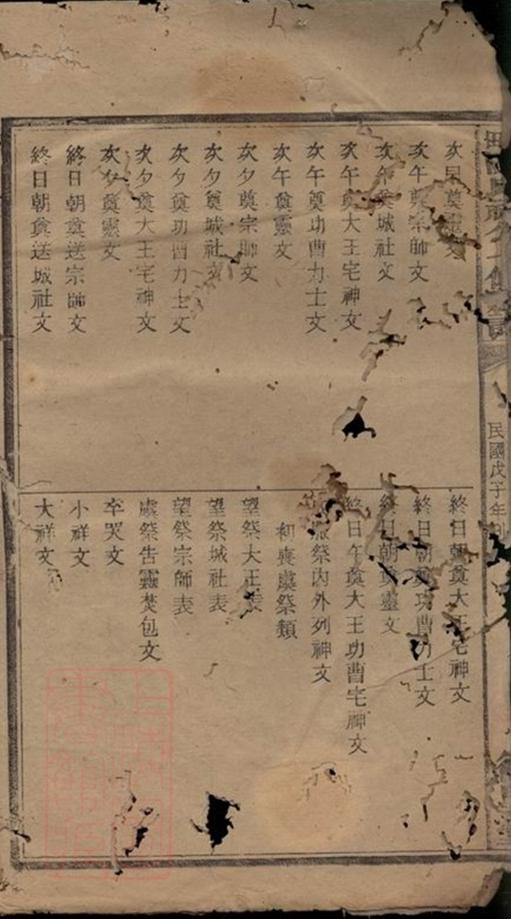 次早奠靈文
次午奠宗師文
次午奠城社文
次午奠大王宅神文
次午奠功曹力士文
次午奠靈文
次夕奠宗師文
次夕奠城社文
次夕奠功曹力士文
次夕奠大王宅神文
次夕奠靈文
終日朝奠送宗師文
終日朝奠送城社文
終日朝奠大王宅神文
終日朝奠功曹力士文
終日朝奠靈文
終日午奠大王功曹宅神文
祭內外列神文
初喪虞祭類
望祭大王表
望祭城社表
望祭宗師表
虞祭告靈焚包文
卒哭文
小祥文
大祥文
民國戊子年